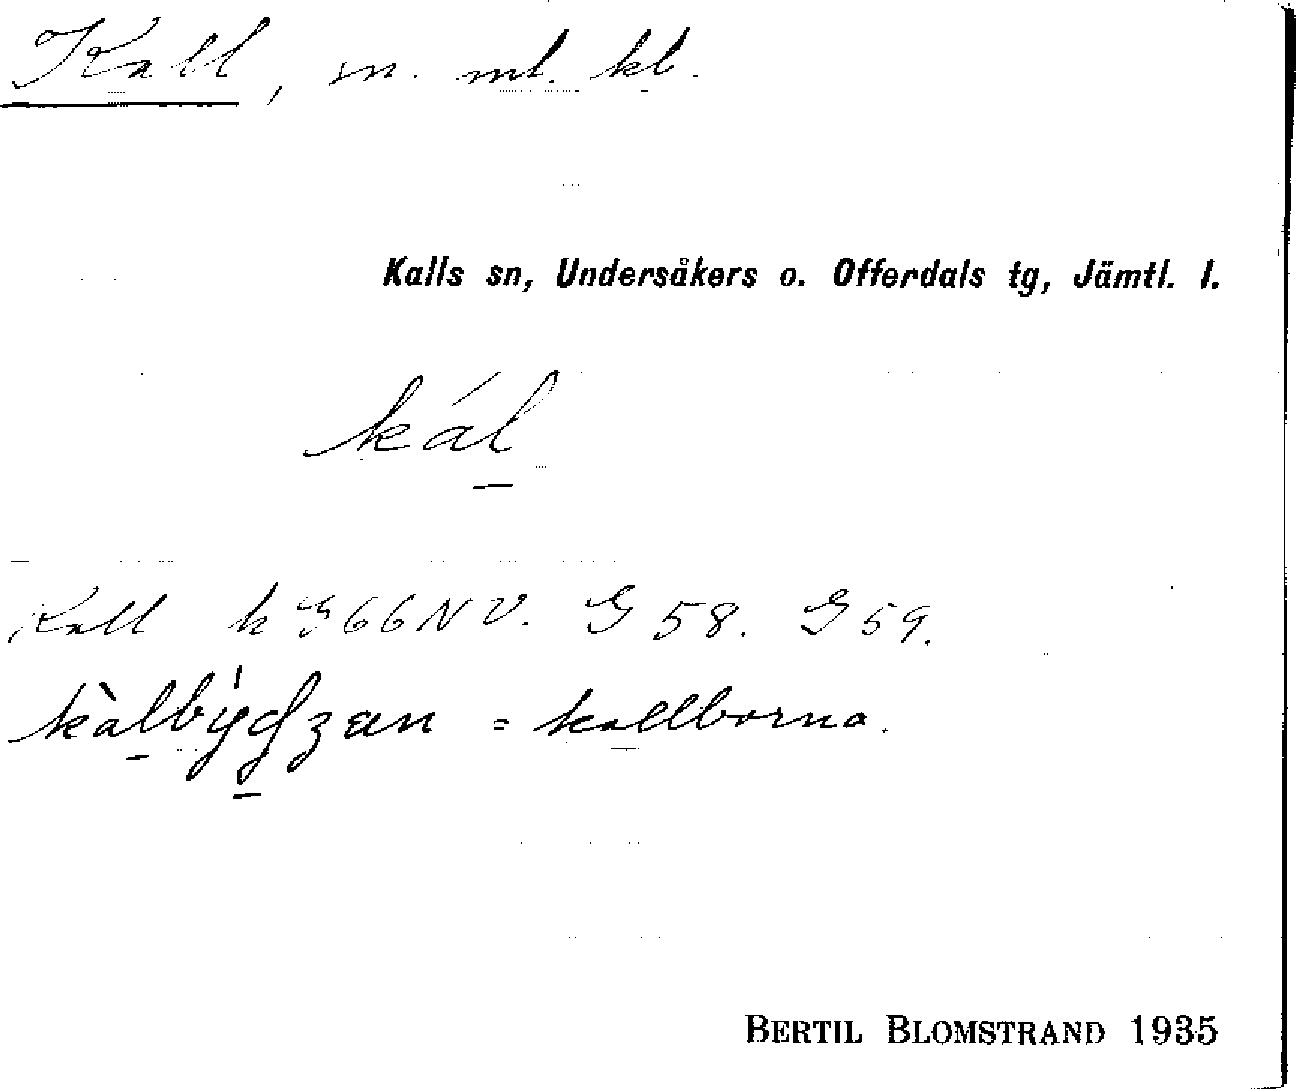 Kall, sn. ml. kl.
Kalls sn, Undersåkers o. Offerdals tg, Jämtl. l.
kál̲
Kall k G66NV. G58. G59.
= kallborna.
BERTIL BLOMSTRAND 1935